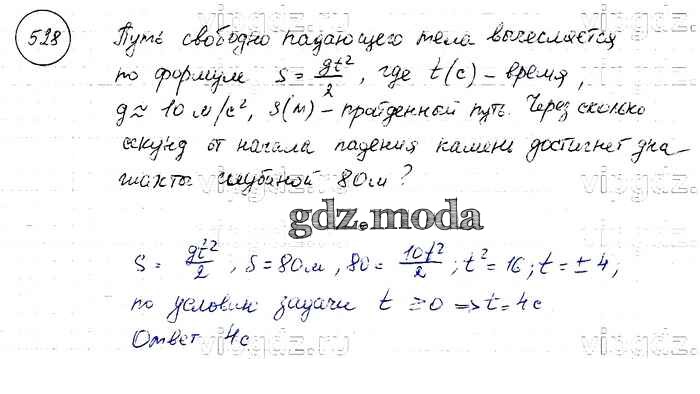 528
Путь свободно падающего тела вычесляется
по формуле S = gt²/2, где t(с) – время,
g ≈ 10 м/с², S(м) – пройденный путь. Через сколько
секунд от начала падения камень достигнет дна
шахты глубиной 80м?
gdz.moda
S = gt²/2, S = 80м, 80 = 10t²/2; t² = 16; t = ± 4;
по условию задачи t ≥ 0 => t = 4с
Ответ 4с
vipgdz.ru